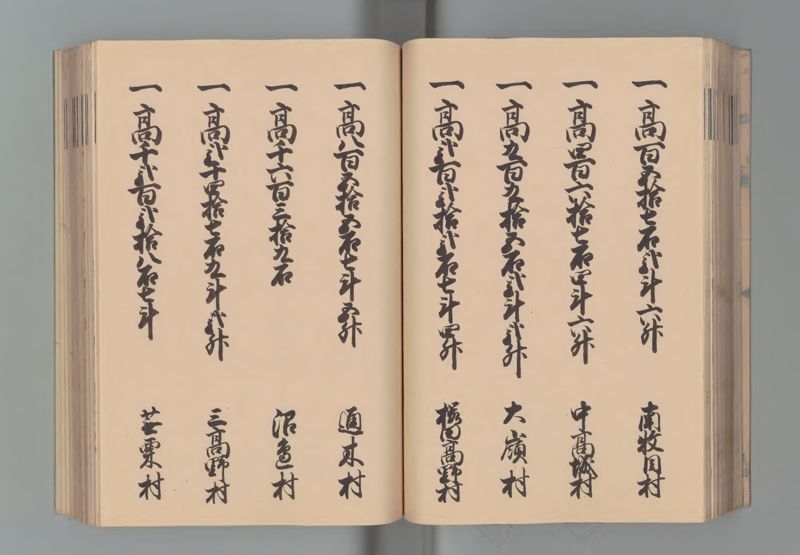 一高百五拾七石弐斗六升 南牧目村
一高四百六拾七石四斗六升 中高城村
一高九百九拾五石弐斗弐升 大嶺村
一高弐百弐拾弐石七斗四升 桜田高野村
一高八百五拾五石七斗五升 通木村
一高千六百三拾九石 沼邉村
一高弐千四拾七石九斗弐升 三高野村
一高千弐百弐拾八石七斗 芋栗村